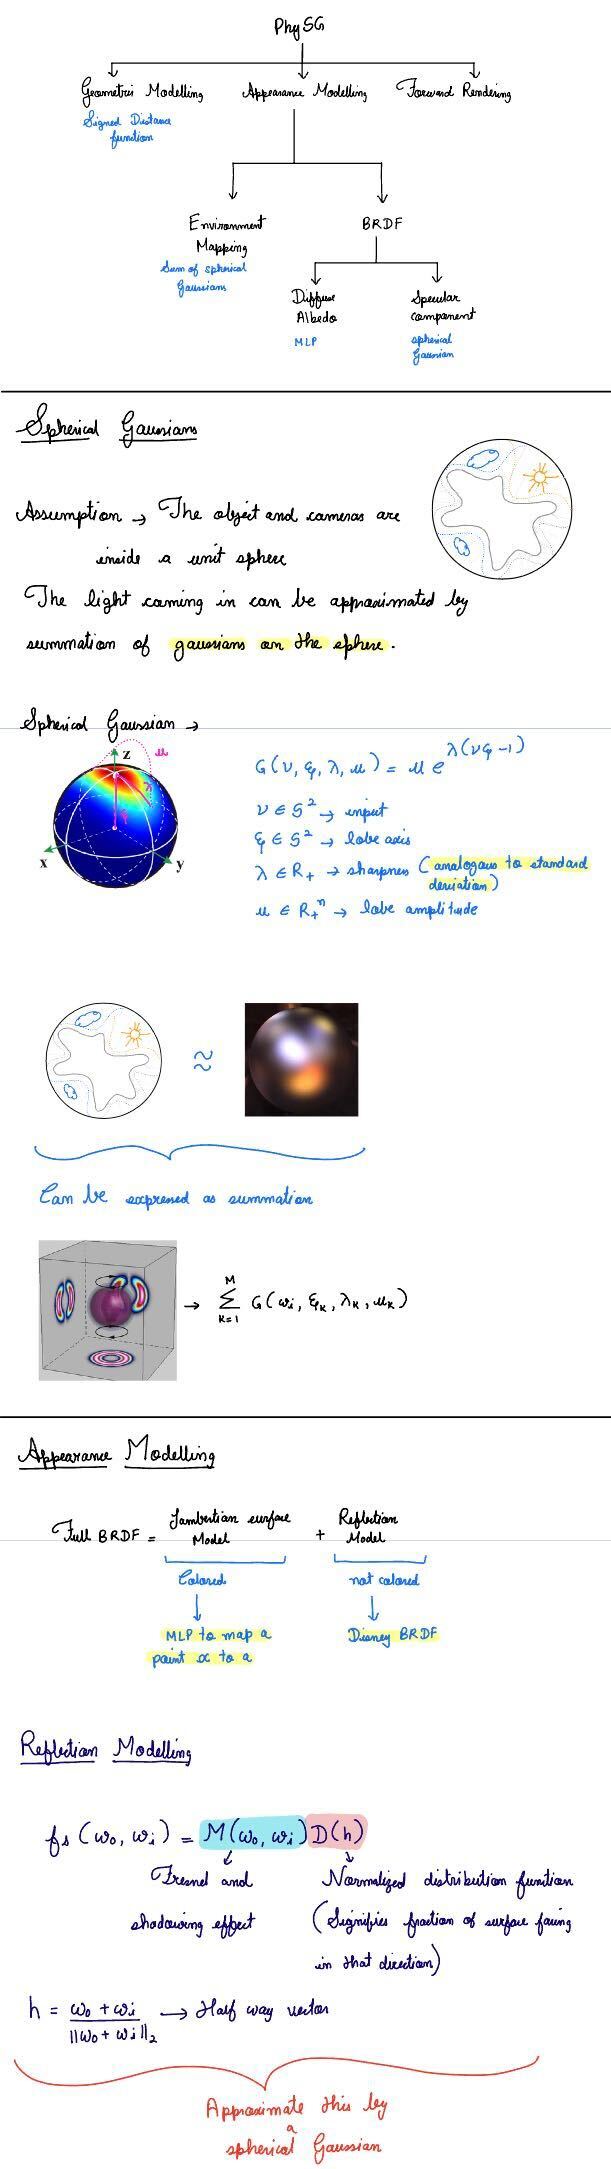 PhySG
Geometric Modelling Appearance Modelling Forward Rendering
Signed Distance
function
Environment BRDF
Mapping
Sum of spherical
Gaussians
Diffuse Specular
Albedo component
MLP spherical
Gaussian
Spherical Gaussians
Assumption → The object and cameras are
inside a unit sphere
The light coming in can be approximated by
summation of gaussians on the sphere.
Spherical Gaussian →
μ
z
λ
ξ
x
y
G(ν, ξ, λ, μ) = μ e^{λ(νξ-1)}
ν ∈ S² → input
ξ ∈ S² → lobe axis
λ ∈ R₊ → sharpness (analogous to standard
deviation)
μ ∈ R₊ⁿ → lobe amplitude
≈
Can be expressed as summation
→ Σ_{k=1}^{M} G(ωi, ξk, λk, μk)
Appearance Modelling
Full BRDF = Lambertian surface Model + Reflection Model
Colored not colored
MLP to map a Disney BRDF
point x to a
Reflection Modelling
fs(ωo, ωi) = M(ωo, ωi) D(h)
Fresnel and Normalized distribution function
shadowing effect (Signifies fraction of surface facing
in that direction)
h = ωo + ωi / ||ωo + ωi||₂ → Half way vector
Approximate this by
a
spherical Gaussian